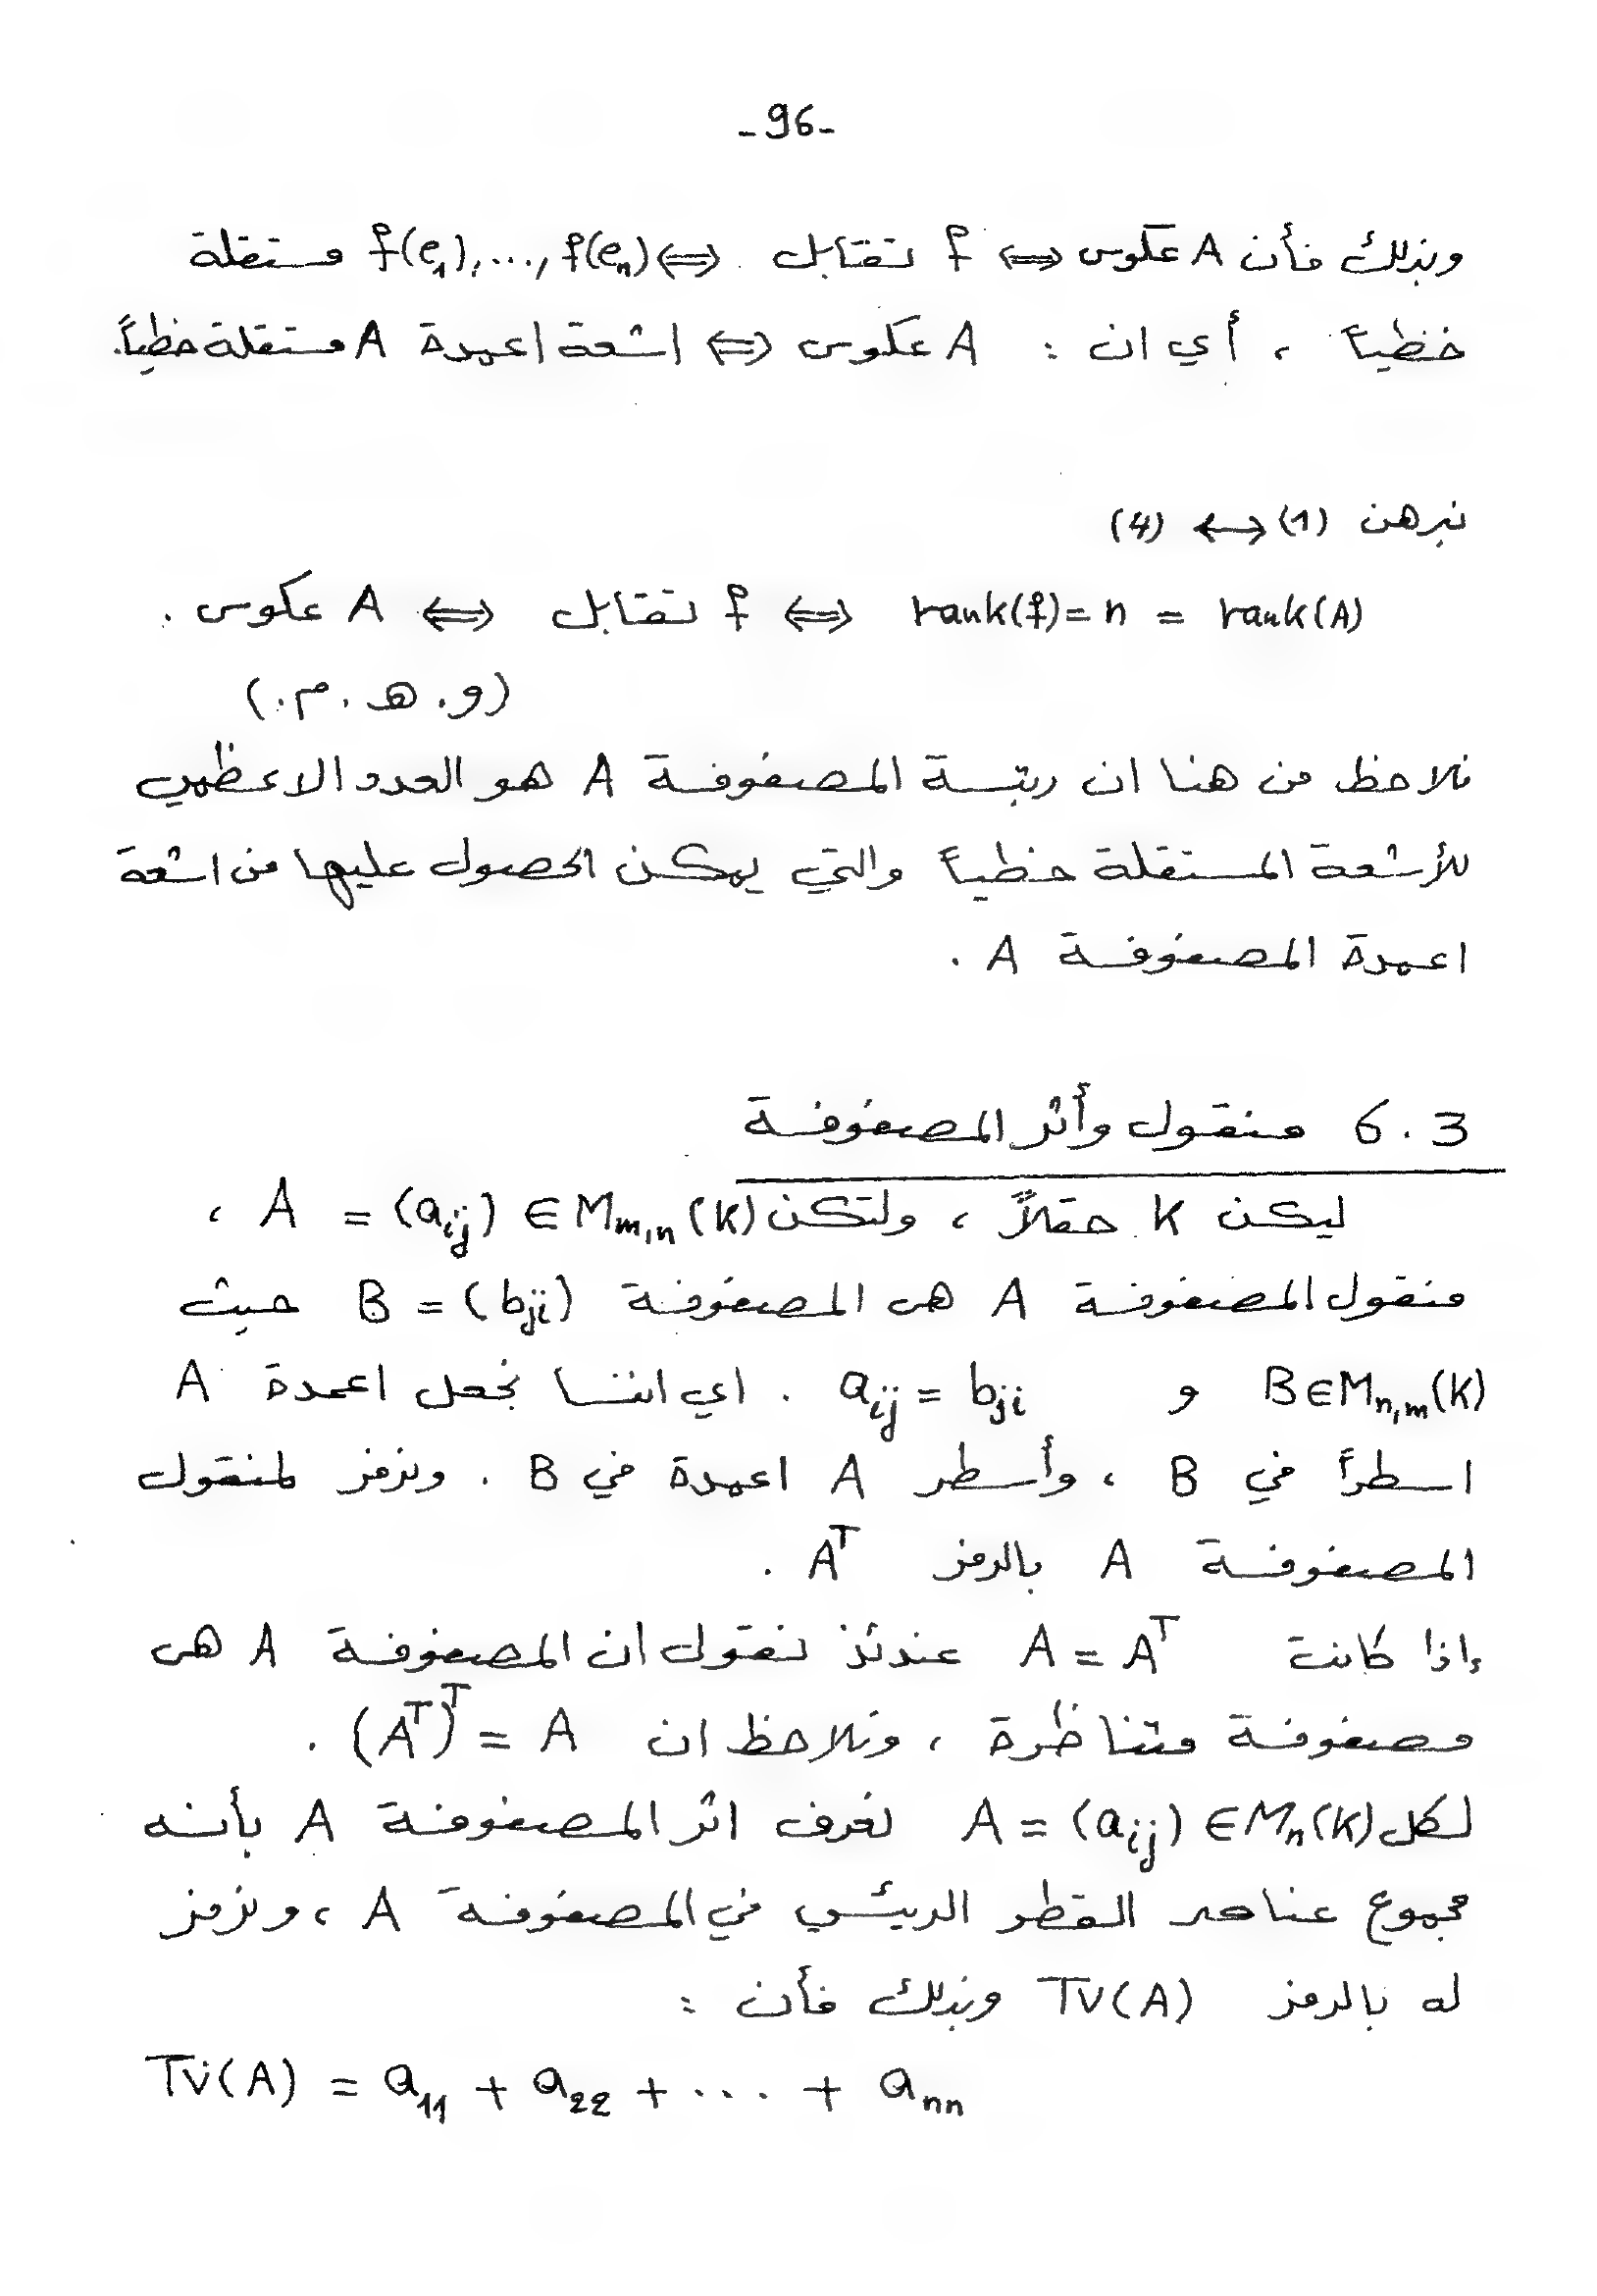 -96-
وبذلك فأن A عكوس ⟺ f تقابل ⟺ f(e₁),...,f(eₙ) مستقلة
خطياً ، أي ان : A عكوس ⟺ اشعة اعمدة A مستقلة خطياً.
نبرهن (1) ⟷ (4)
rank(f) = n = rank(A) ⟺ f تقابل ⟺ A عكوس .
(و. هـ. م.)
نلاحظ من هنا ان رتبة المصفوفة A هو العدد الاعظمي
للأشعة المستقلة خطياً والتي يمكن الحصول عليها من اشعة
اعمدة المصفوفة A .
6.3 منقول وأثر المصفوفة
ليكن K حقلاً ، ولتكن A = (aᵢⱼ) ∈ Mₘ,ₙ(K) ،
منقول المصفوفة A هي المصفوفة B = (bⱼᵢ) حيث
B∈Mₙ,ₘ(K) و aᵢⱼ = bⱼᵢ . اي اننا نجعل اعمدة A
اسطراً في B ، وأسطر A اعمدة في B . ونرمز لمنقول
المصفوفة A بالرمز Aᵀ .
إذا كانت A = Aᵀ عندئذ نقول ان المصفوفة A هي
مصفوفة متناظرة ، ونلاحظ ان (Aᵀ)ᵀ = A .
لكل A = (aᵢⱼ) ∈ Mₙ(K) نعرف اثر المصفوفة A بأنه
مجموع عناصر القطر الرئيسي في المصفوفة A ، ونرمز
له بالرمز Tr(A) وبذلك فأن :
Tr(A) = a₁₁ + a₂₂ + ... + aₙₙ